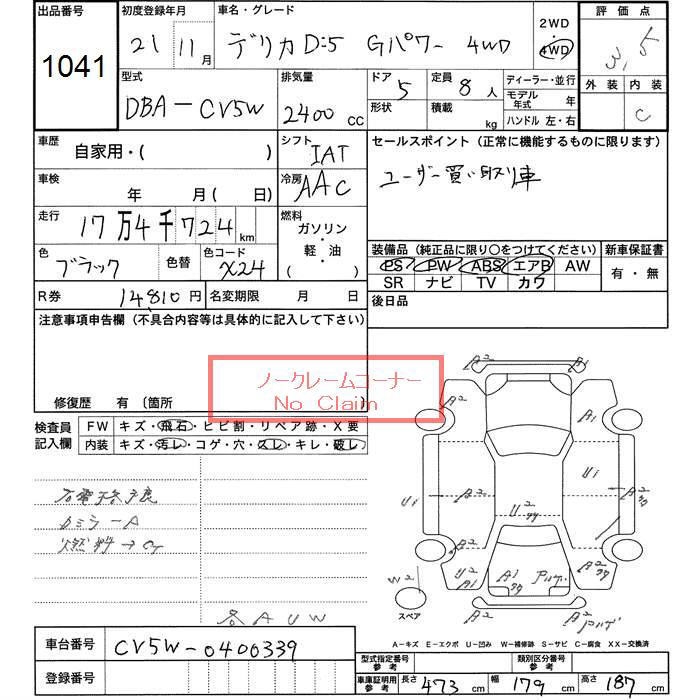 出品番号 初度登録年月 車名・グレード 2WD・4WD 評価点
1041 21 11月 デリカD:5 Gパワー 4WD 3.5
型式 排気量 ドア 定員 ディーラー・並行 外装 内装
DBA-CV5W 2400 CC 5 8人 モデル年式 年 C
形状 積載 kg ハンドル 左・右
車歴 自家用・( ) シフト IAT セールスポイント（正常に機能するものに限ります）
車検 年 月(日) 冷房 AAC ユーザー買い取り車
走行 17万4千724km 燃料 ガソリン・軽油・( )
色 ブラック 色替 色コード X24
装備品（純正品に限り○をつけてください） 新車保証書
PS PW ABS エアB AW 有・無
SR ナビ TV カワ
R券 14,810円 名変期限 月 日 後日品
注意事項申告欄（不具合内容等は具体的に記入して下さい）
ノークレームコーナー
No Claim
修復歴 有〔箇所 〕
検査員記入欄 FW キズ・飛石・ヒビ割・リペア跡・X要
内装 キズ・汚レ・コゲ・穴・スレ・キレ・破レ
カミラーA
燃料→
各AUW
A2 A1
A2 A1
U1 A2 U1 A2
U2
A2 A2
W2 U2 A1 A2
スペア
A2 A2
A-キズ E-エクボ U-凹み W-補修跡 S-サビ C-腐食 XX-交換済
車台番号 CV5W-0400339
登録番号
型式指定番号 参考 類別区分番号 参考
車庫証明用 参考 長さ 473cm 幅 179cm 高さ 187cm